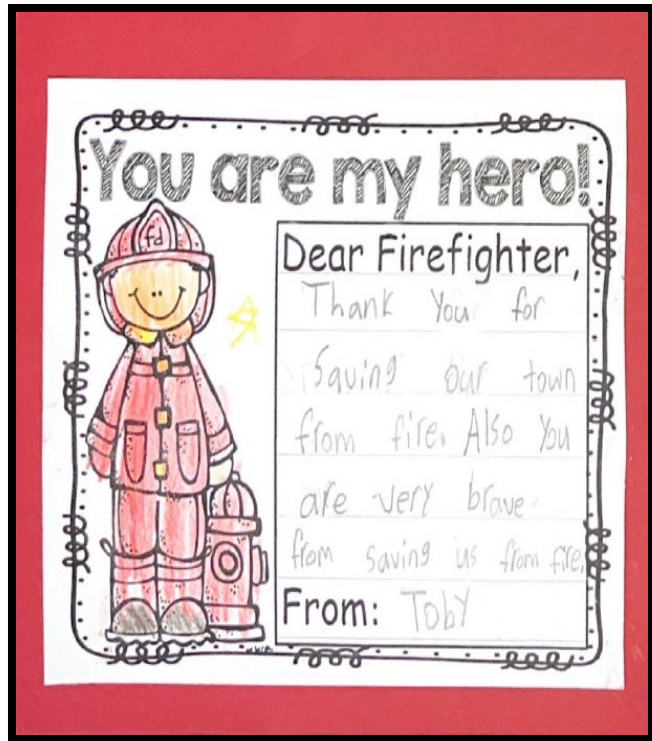 You are my hero!
fd
Dear Firefighter,
Thank You for
Saving our town
from fire. Also You
are very brave
from saving us from fire.
From: Toby